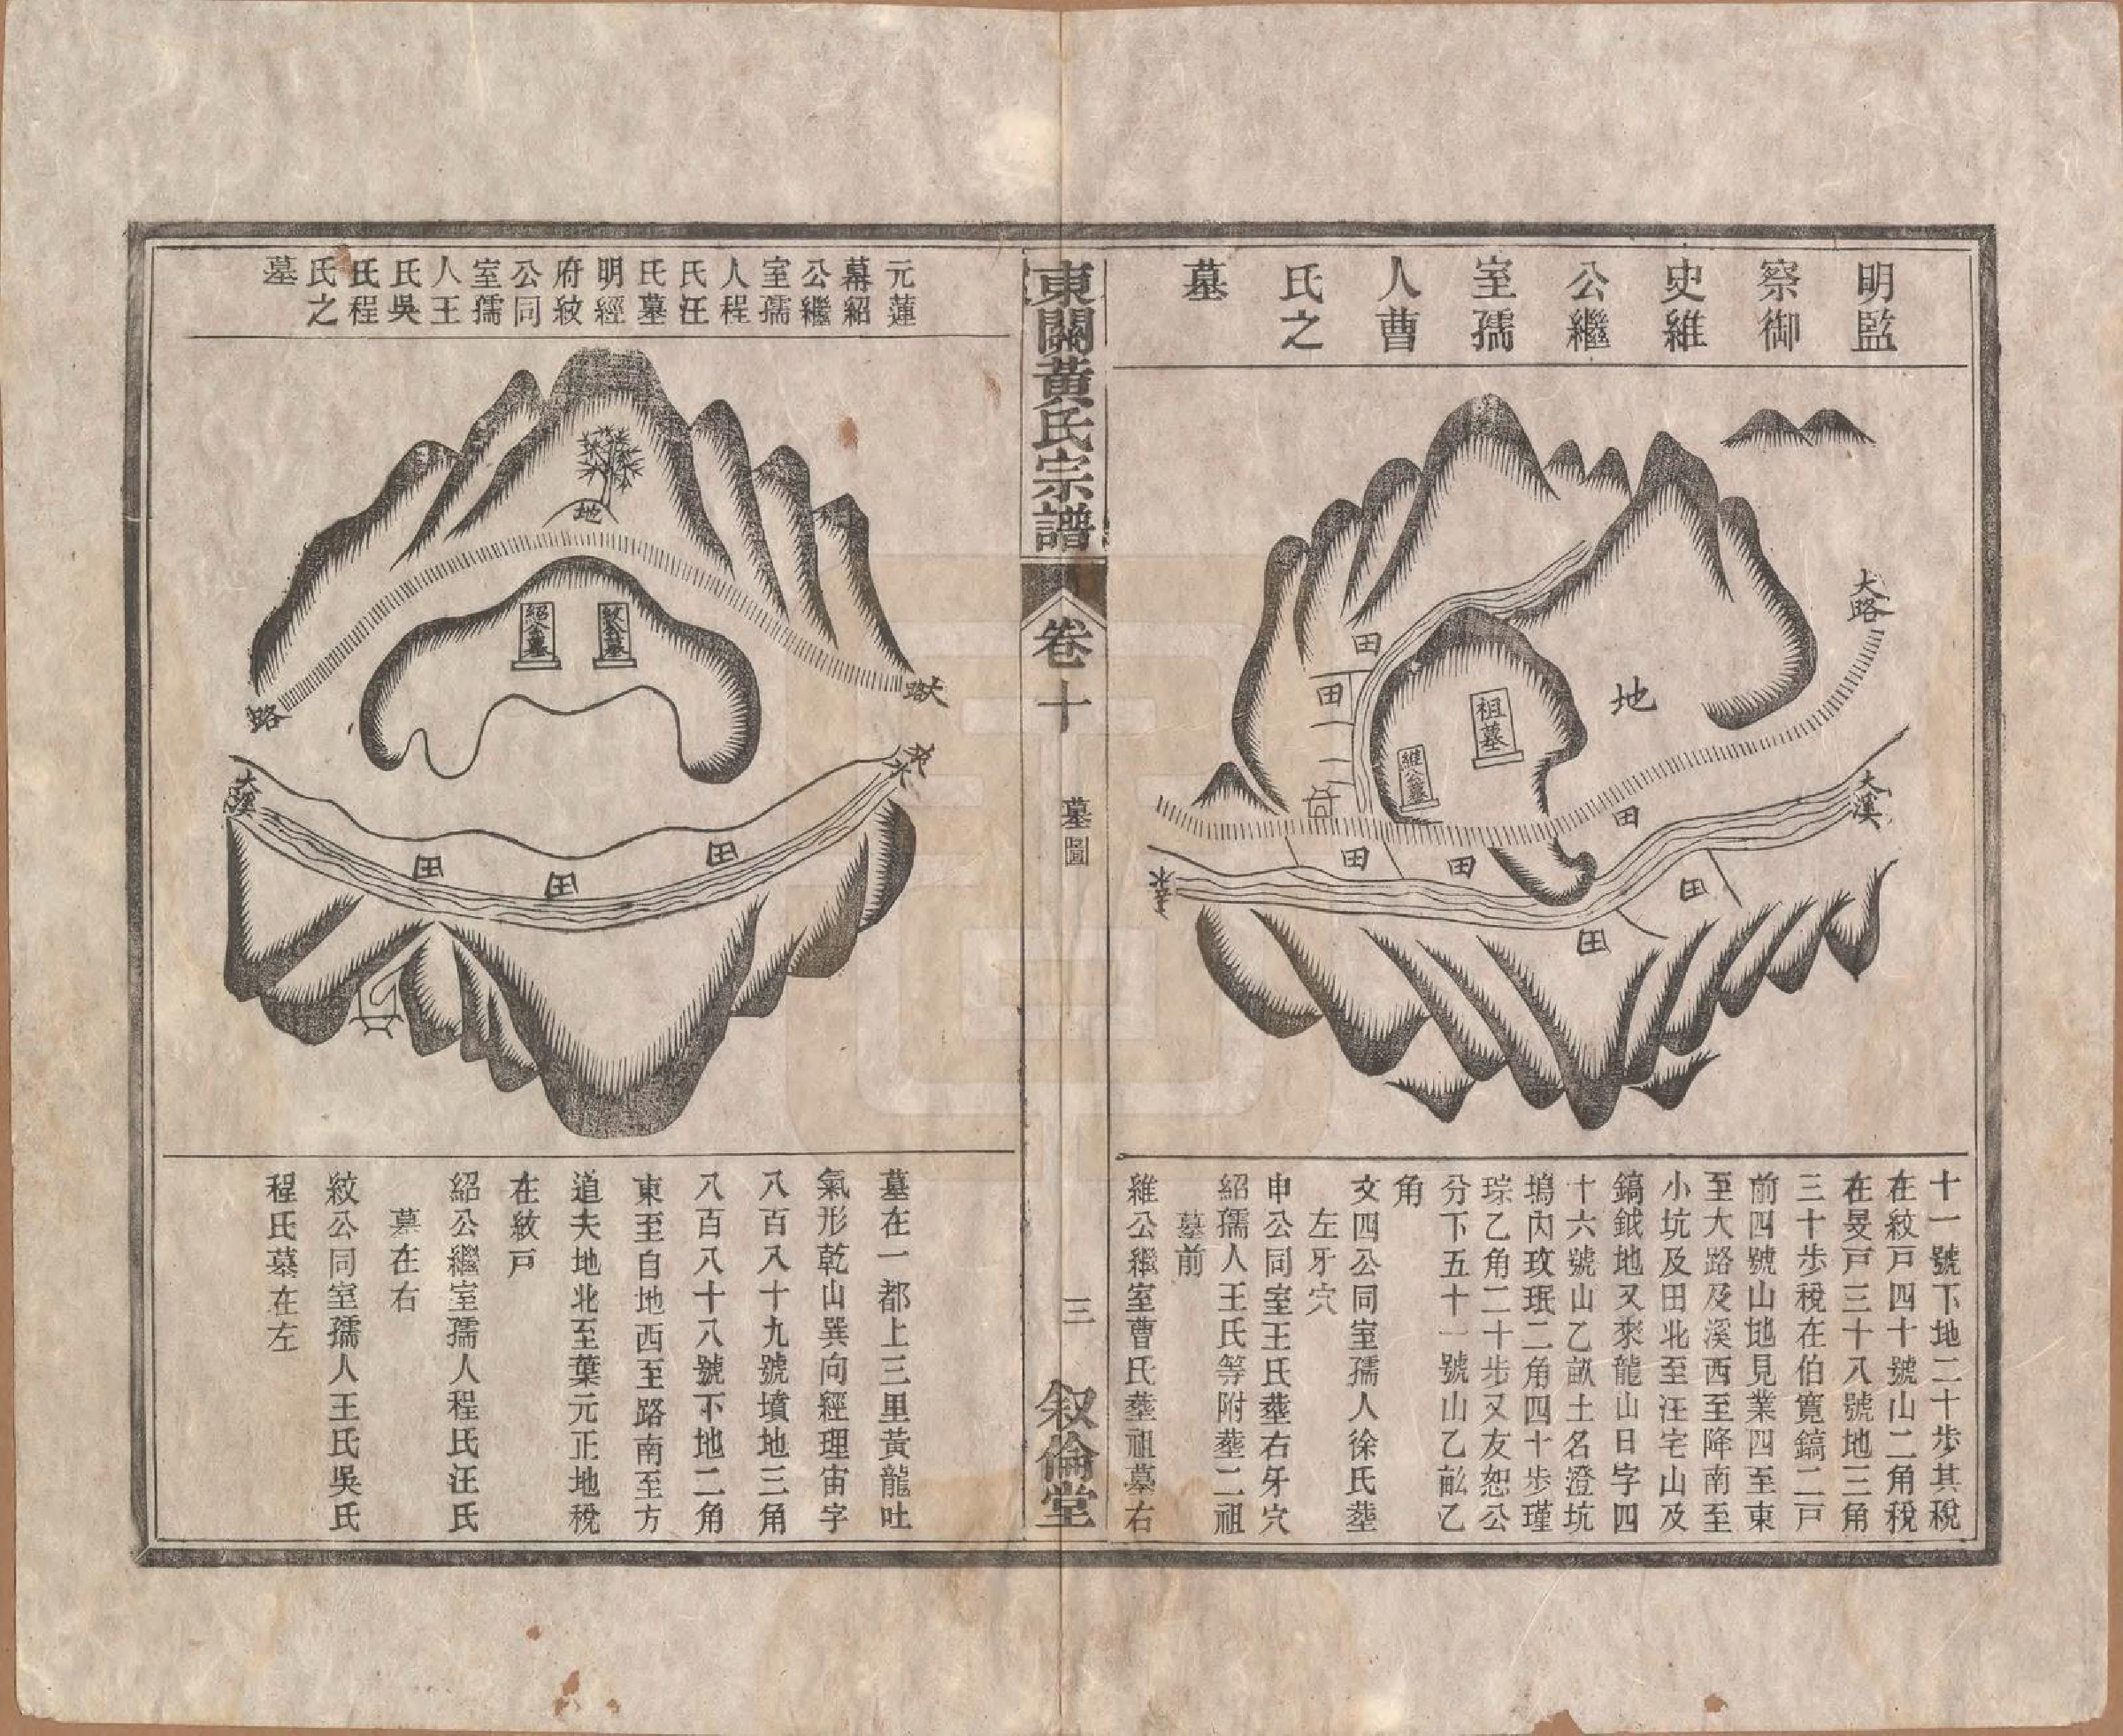 明監
察御
史維
公繼
室孺
人曹
氏之
墓
大路
地
田
田
祖墓
維公墓
田
大溪
田
田
田
田
水
十一號下地二十步其稅
在紋戶四十號山二角稅
在旻戶三十八號地三角
三十步稅在伯寬鎬二戶
前四號山地見業四至東
至大路及溪西至降南至
小坑及田北至汪宅山及
鎬鉞地又來龍山日字四
十六號山乙畝土名澄坑
塢內玫珉二角四十步瑾
琮乙角二十步又友恕公
分下五十一號山乙畝乙
角
文四公同室孺人徐氏葬
左牙穴
申公同室王氏葬右牙穴
紹孺人王氏等附葬二祖
墓前
維公繼室曹氏葬祖墓右
東關黃氏宗譜
卷十
墓圖
三
叙倫堂
元蓮
幕紹
公繼
室孺
人程
氏汪
氏墓
明經
府紋
公同
室孺
人王
氏吳
氏程
氏之
墓
地
紋公墓
紹公墓
大路
路
來水
大溪
田
田
田
墓在一都上三里黃龍吐
氣形乾山巽向經理宙字
八百八十九號墳地三角
八百八十八號下地二角
東至自地西至路南至方
道夫地北至葉元正地稅
在紋戶
紹公繼室孺人程氏汪氏
墓在右
紋公同室孺人王氏吳氏
程氏墓在左